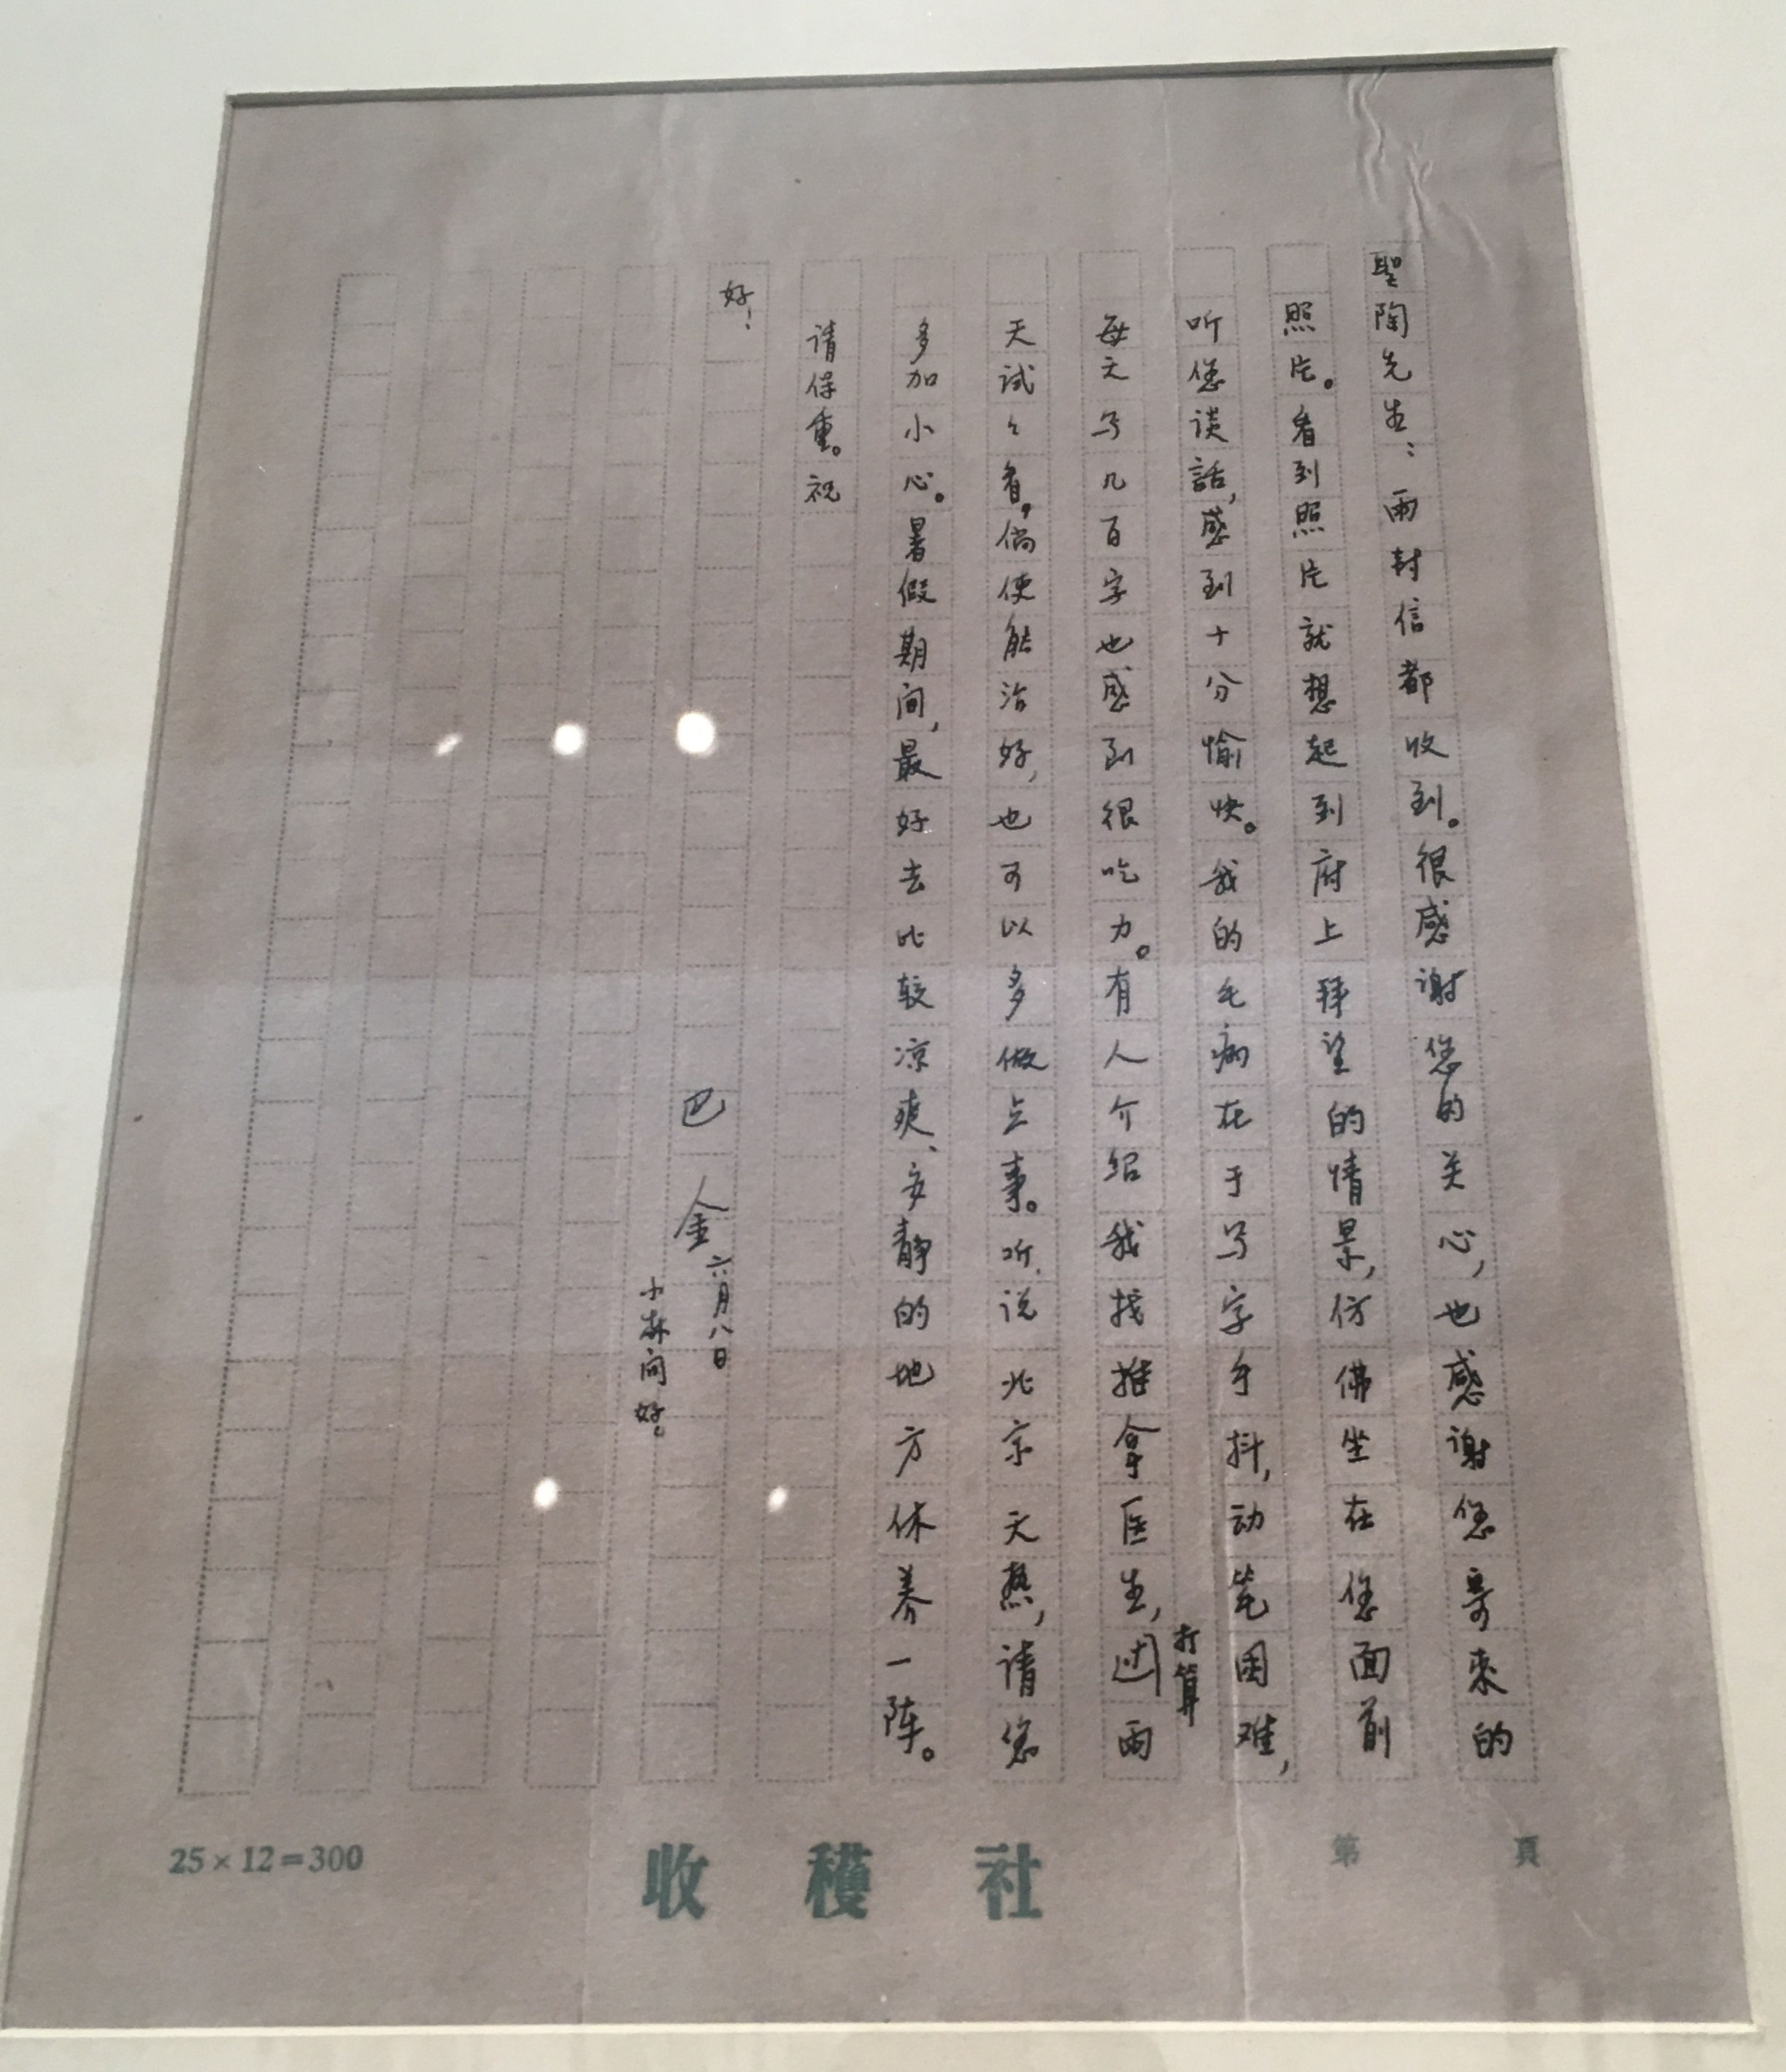 聖陶先生：兩封信都收到。很感谢您的关心，也感谢您寄来的
照片。看到照片就想起到府上拜望的情景，仿佛坐在您面前
听您谈話，感到十分愉快。我的毛病在于写字手抖，动笔困难，
每天写几百字也感到很吃力。有人介绍我找推拿医生，打算过兩
天试々看。倘使能治好，也可以多做点事。听说北京天热，请您
多加小心。暑假期间，最好去比较凉爽、安静的地方休养一阵。
请保重。祝
好！
巴金 六月八日
小林问好。
25×12=300
收穫社
第 頁